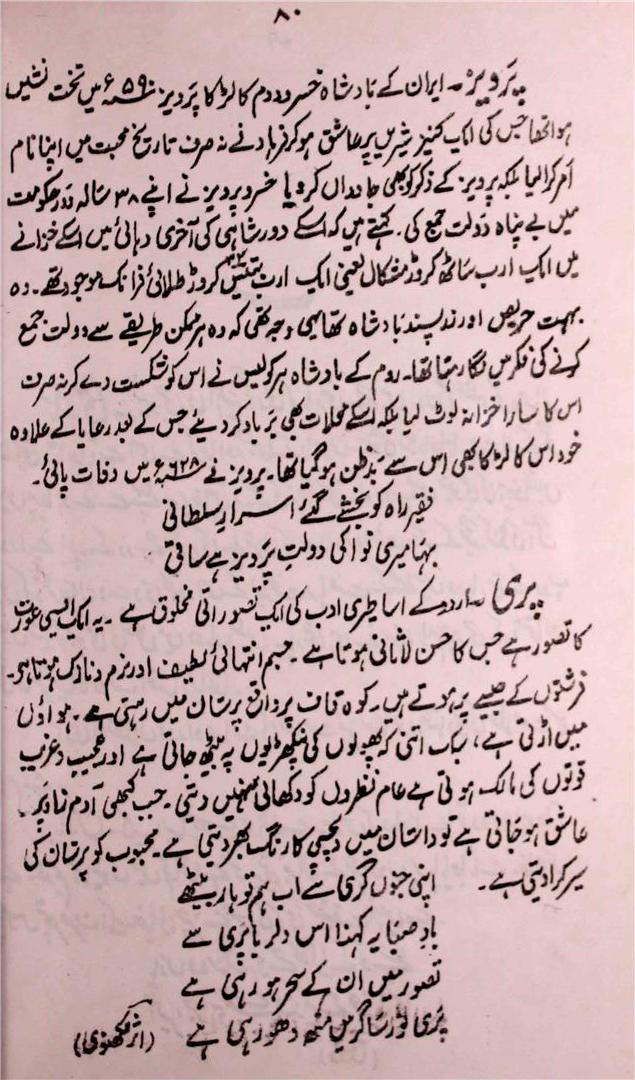 ۸۰
پرویز۔ ایران کے بادشاہ خسرو دوم کا لڑکا پرویز ۵۹۰ء میں تخت نشیں
ہوا تھا جس کی ایک کنیز شیریں پر عاشق ہو کر فرہاد نے نہ صرف تاریخ محبت میں اپنا نام
امر کرا لیا بلکہ پرویز کے ذکر کو بھی جاوداں کر دیا خسرو پرویز نے اپنے ۳۸ سالہ دور حکومت
میں بے پناہ دولت جمع کی۔ کہتے ہیں کہ اسکے دور شاہی کی آخری دہائی میں اسکے خزانے
میں ایک ارب ساٹھ کروڑ مشکال یعنی ایک ارب کروڑ طلائی فرانک موجود تھے۔ وہ
بہت حریص اور زر پسند بادشاہ تھا یہی وجہ تھی کہ وہ ہر ممکن طریقے سے دولت جمع
کرنے کی فکر میں لگا رہتا تھا۔ روم کے بادشاہ ہرکولیس نے اس کو شکست دے کر نہ صرف
اس کا سارا خزانہ لوٹ لیا بلکہ اسکے محلات بھی برباد کر دیئے جس کے بعد رعایا کے علاوہ
خود اس کا لڑکا بھی اس سے بدظن ہو گیا تھا۔ پرویز نے ۶۲۸ء میں وفات پائی۔
فقیر راہ کو بخشے گئے اسرار سلطانی
بہا میری نوا کی دولتِ پرویز ہے ساقی
پری ۔ اردو کے اساطیری ادب کی ایک تصوراتی مخلوق ہے ۔ یہ ایک ایسی عورت
کا تصور ہے جس کا حسن لاثانی ہوتا ہے ۔ جسم انتہائی لطیف اور نرم و نازک ہوتا ہو۔
فرشتوں کے جیسے پر ہوتے ہیں۔ کوہ قاف پر واقع پرستان میں رہتی ہے۔ ہواؤں
میں اڑتی ہے، سبک اتنی کہ پھولوں کی پنکھڑیوں پہ بیٹھ جاتی ہے اور عجیب و غریب
قوتوں کی مالک ہوتی ہے عام نظروں کو دکھائی نہیں دیتی۔ جب کبھی آدم زاد پر
عاشق ہو جاتی ہے تو داستان میں دلچسپی کا رنگ بھر دیتی ہے۔ محبوب کو پرستان کی
سیر کرا دیتی ہے۔
اپنی جنوں گری سے اب ہم تو ہار بیٹھے
بادِ صبا یہ کہنا اس دلربا پری سے
تصور میں ان کے سحر ہو رہی ہے
پری نور ساگر میں منھ دھو رہی ہے (اثر لکھنوی)